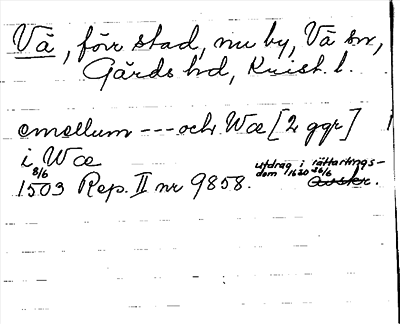 Vä, förr stad, nu by, Vä sn,
Gärds hd, Krist. l.
emellum --- och Wæ [2 ggr]
i Wæ
8/6
1503 Rep. II nr 9858. utdrag i rättartings-
dom 26/6 1630 avskr.